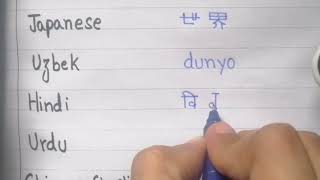 Japanese 世界
Uzbek dunyo
Hindi वि
Urdu